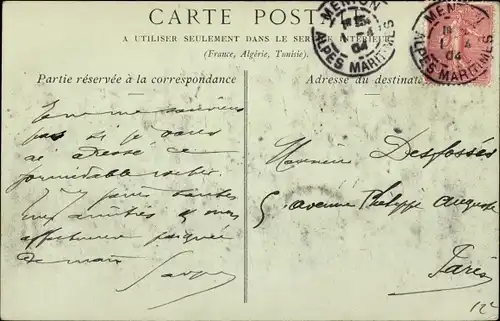 CARTE POSTALE
A UTILISER SEULEMENT DANS LE SERVICE INTÉRIEUR
(France, Algérie, Tunisie).
Partie réservée à la correspondance
Adresse du destinataire
MENTON
1 - 4
04
ALPES MARITIMES
MENTON
1 4
04
ALPES MARITIMES
Je ne me souviens
pas si je vous
ai adressé ce
formidable
J'y joins toutes
mes amitiés & mon
affectueuse poignée
de main
Monsieur Desfossés
5, avenue Philippe Auguste
Paris
12